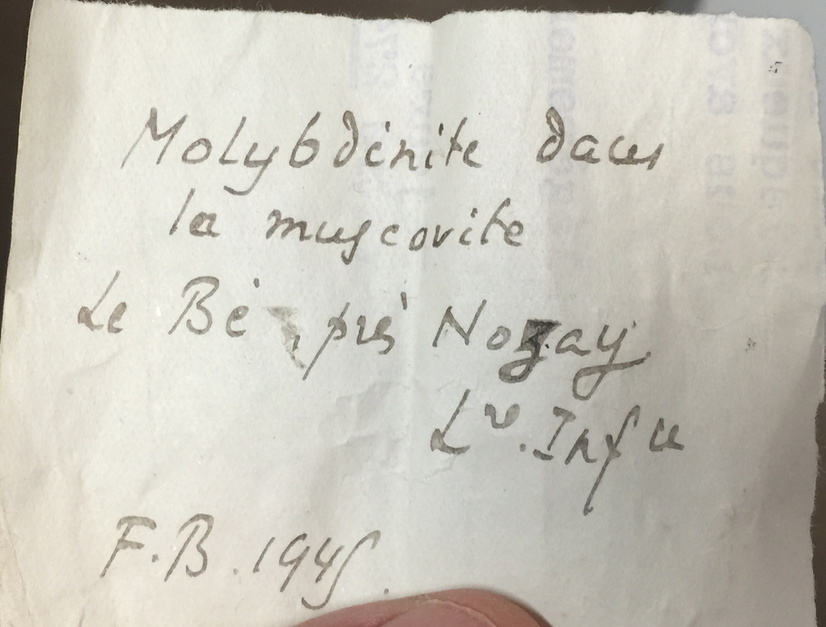 Molybdénite dans
la muscovite
Le Bé, près Nozay
Lre. Infre
F.B. 1945.